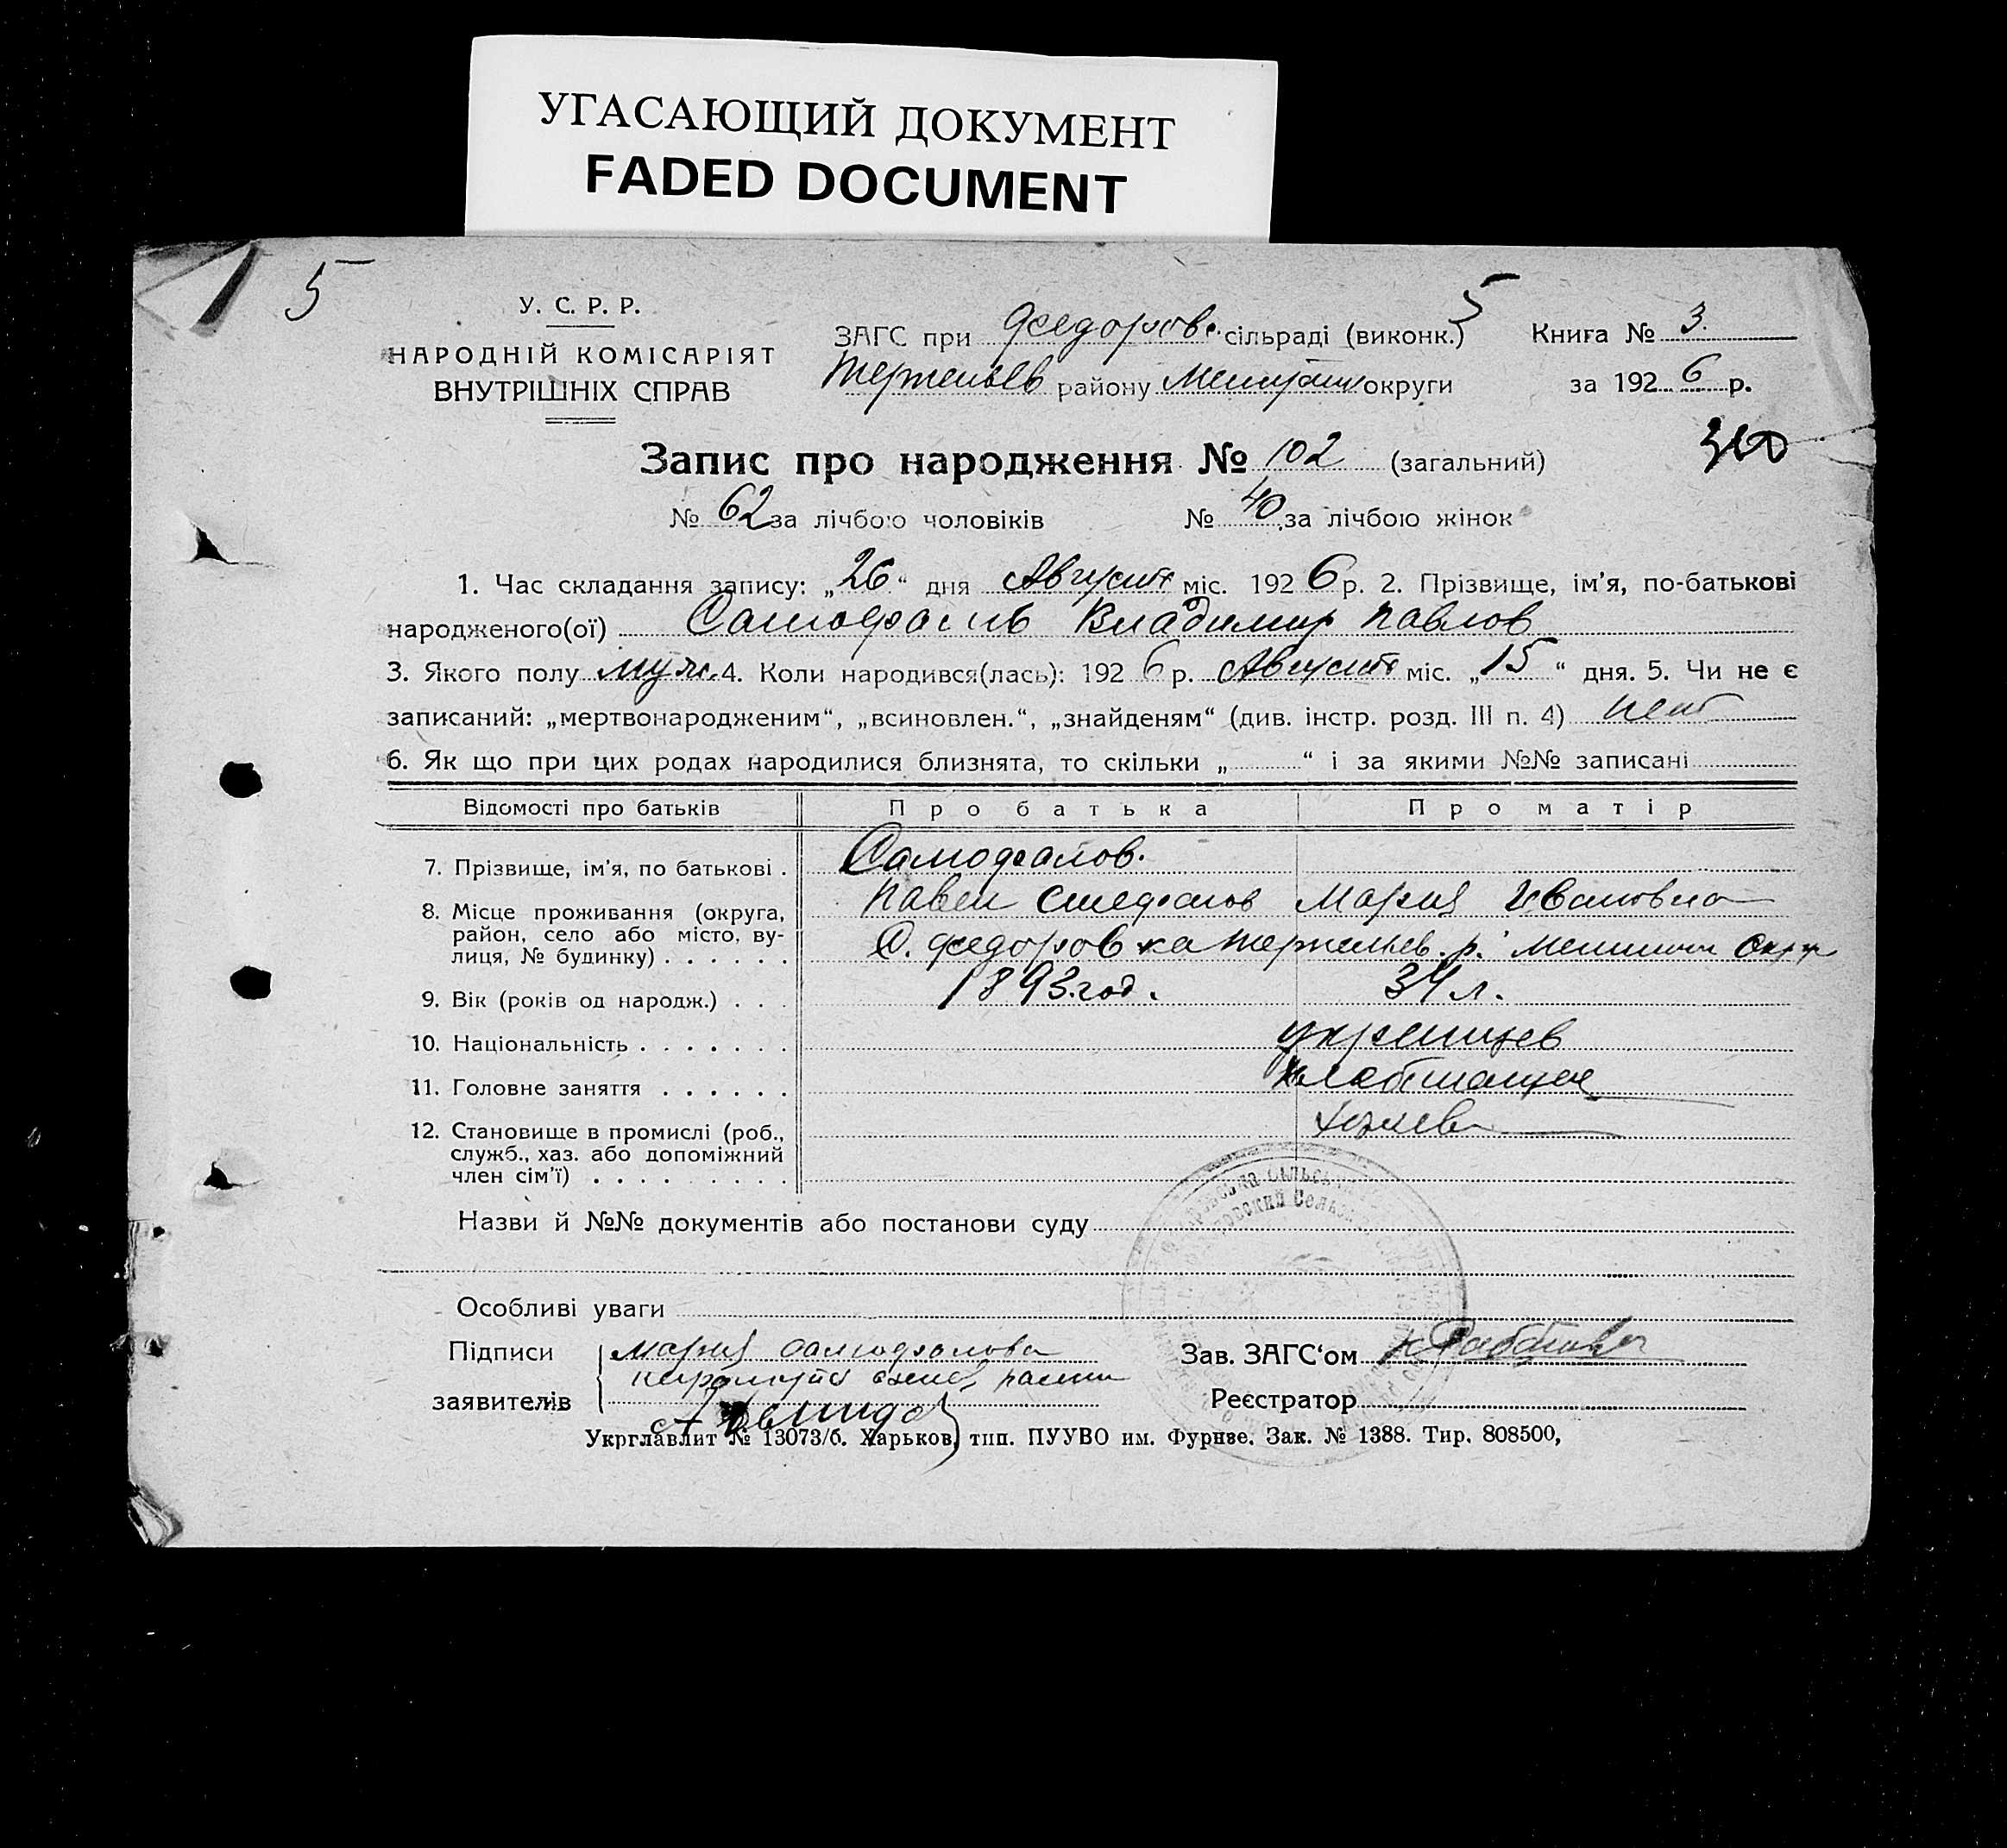 УГАСАЮЩИЙ ДОКУМЕНТ
FADED DOCUMENT
5
5
У. С. Р. Р.
НАРОДНІЙ КОМІСАРІЯТ
ВНУТРІШНІХ СПРАВ
ЗАГС при Федоров. сільраді (виконк.)
Книга № 3.
району округи
за 1926 р.
Запис про народження № 102 (загальний)
№ 62 за лічбою чоловіків № 40 за лічбою жінок
1. Час складання запису: „26“ дня Августа міс. 1926 р. 2. Прізвище, ім’я, по-батькові
народженого(ої) Самофалов Владимир Павлов
3. Якого полу муж. 4. Коли народився(лась): 1926 р. Августа міс. „15“ дня. 5. Чи не є
записаний: „мертвонародженим“, „всиновлен.“, „знайденям“ (див. інстр. розд. III п. 4) нет
6. Як що при цих родах народилися близнята, то скільки „ “ і за якими №№ записані
Відомості про батьків Про батька Про матір
7. Прізвище, ім’я, по батькові . Самофалов.
Павел Стефанов Мария Ивановна
8. Місце проживання (округа,
район, село або місто, ву-
лиця, № будинку) . . . . . .
С. Федоровка р. Округ
9. Вік (років од народж.) . . . 1893 год. 34 л.
10. Національність . . . . . . .
11. Головне заняття . . . . . . хлебопашец
12. Становище в промислі (роб.,
служб., хаз. або допоміжний
член сім’ї) . . . . . . . . .
Назви й №№ документів або постанови суду
Особливі уваги
Підписи
заявителів
Мария Самофалова
Зав. ЗАГС‘ом
Реєстратор
Укрглавлит № 13073/б. Харьков, тип. ПУУВО им. Фурнзе. Зак. № 1388. Тир. 808500,